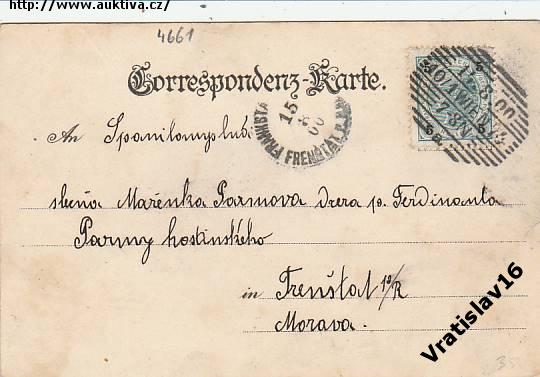 http://www.auktiva.cz/
4661
Correspondenz-Karte.
An Spanilomyslná
slečna Mařenka Parmova dcera p. Ferdinanta
Parmy hostinského
in Frenštat p/R
Morava.
15 8 00
FRENSTAT
10/1 WIEN
7-8/N
5 5
5 5
Vratislav16